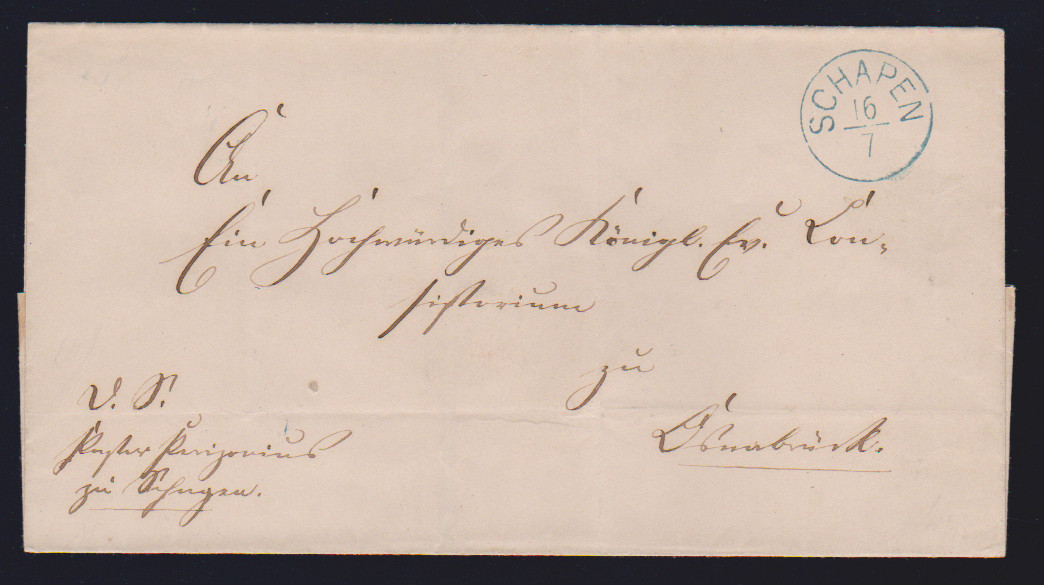 SCHAPEN
16
7
An
Ein Hochwürdiges Königl. Ev. Con-
sistorium
zu
Osnabrück.
D. S.
Pastor Perizonius
zu Schapen.